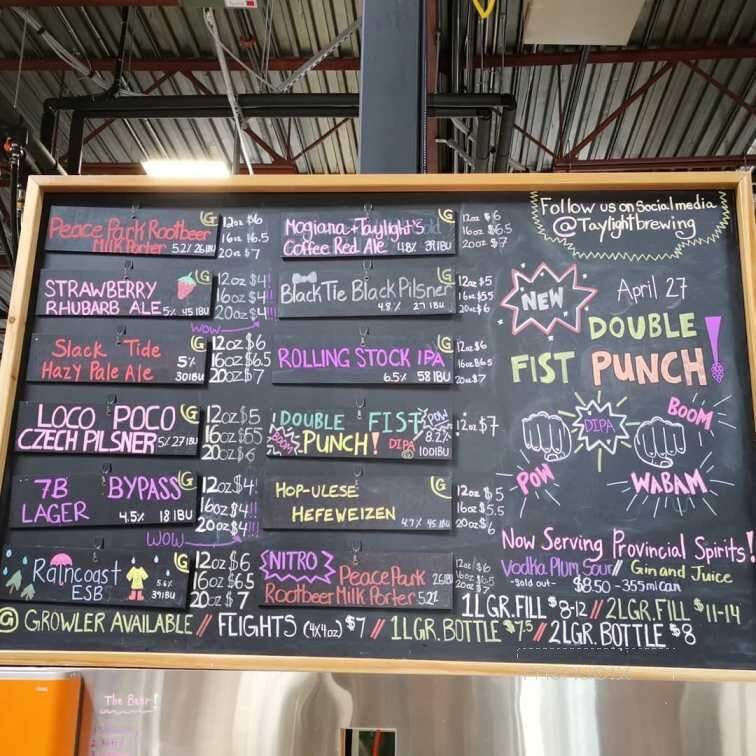 Peace Park Rootbeer
Milk Porter 5.2% 26 IBU
G
12oz $6
16oz $6.5
20oz $7
STRAWBERRY
RHUBARB ALE 5% 45 IBU
G
12oz $4!
16oz $4!!
20oz $4!!!
WOW
Slack Tide
Hazy Pale Ale
5%
30 IBU
G
12oz $6
16oz $6.5
20oz $7
LOCO POCO
CZECH PILSNER 5% 27 IBU
G
12oz $5
16oz $5.5
20oz $6
7B BYPASS
LAGER 4.5% 18 IBU
G
12oz $4!
16oz $4!!
20oz $4!!!
WOW
Raincoast
ESB
5.6%
39 IBU
G
12oz $6
16oz $6.5
20oz $7
Mogiana + Taylight's
Coffee Red Ale 4.8% 39 IBU
G
12oz $6
16oz $6.5
20oz $7
Black Tie Black Pilsner
4.8% 27 IBU
G
12oz $5
16oz $5.5
20oz $6
ROLLING STOCK IPA
6.5% 58 IBU
G
12oz $6
16oz $6.5
20oz $7
DOUBLE FIST
BOOM PUNCH! DIPA
POW
8.2%
100 IBU
G
12oz $7
HOP-ULESE
HEFEWEIZEN
4.7%
G
12oz $5
16oz $5.5
20oz $6
NITRO
Peace Park 26 IBU
Rootbeer Milk Porter 5.2%
12oz $6
16oz $6.5
20oz $7
Follow us on Social media
@Taylightbrewing
NEW
April 27
DOUBLE
FIST PUNCH!
DIPA
BOOM
POW
WABAM
Now Serving Provincial Spirits!
Vodka Plum Sour // Gin and Juice
-Sold out- $8.50 - 355ml can
1LGR. FILL $8-12 // 2LGR. FILL $11-14
G GROWLER AVAILABLE // FLIGHTS (4x4oz) $7 // 1LGR. BOTTLE $7.5 // 2LGR. BOTTLE $8
The Baar!